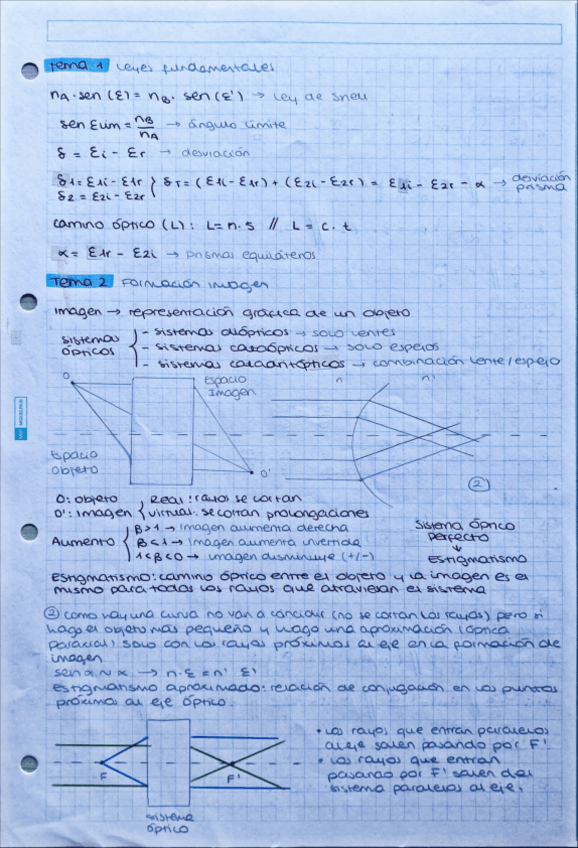 Tema 1 Leyes fundamentales
nA · sen (ε) = nB · sen (ε') → Ley de Snell
sen εlim = nB/nA → ángulo límite
δ = εi - εr → desviación
δ1 = ε1i - ε1r } δT = (ε1i - ε1r) + (ε2i - ε2r) = ε1i - ε2r - α → desviación prisma
δ2 = ε2i - ε2r
camino óptico (L): L = n·s // L = c·t
α = ε1r - ε2i → prismas equiláteros
Tema 2 Formación imagen
imagen → representación gráfica de un objeto
sistemas ópticos { - sistemas dióptricos → solo lentes
- sistemas catóptricos → solo espejos
- sistemas → combinación lente/espejo
O
Espacio Imagen
n n'
Espacio objeto
O'
2
O: objeto { Real: rayos se cortan
O': imagen { virtual: se cortan prolongaciones
Aumento { β>1 → imagen aumenta derecha
β<1 → imagen aumenta invertida
1<β<0 → imagen disminuye (+/-)
Sistema óptico perfecto
↓
Estigmatismo
Estigmatismo: camino óptico entre el objeto y la imagen es el
mismo para todos los rayos que atraviesan el sistema
② como hay una curva no van a coincidir (no se cortan los rayos) pero si
hago el objeto más pequeño y hago una aproximación (óptica
paraxial) solo con los rayos próximos al eje en la formación de
imagen
sen α ~ α → n·ε = n' ε'
Estigmatismo aproximado: relación de conjugación en los puntos
próximos al eje óptico.
F
F'
sistema óptico
• Los rayos que entran paralelos
al eje salen pasando por F'.
• Los rayos que entran
pasando por F' salen del
sistema paralelos al eje.